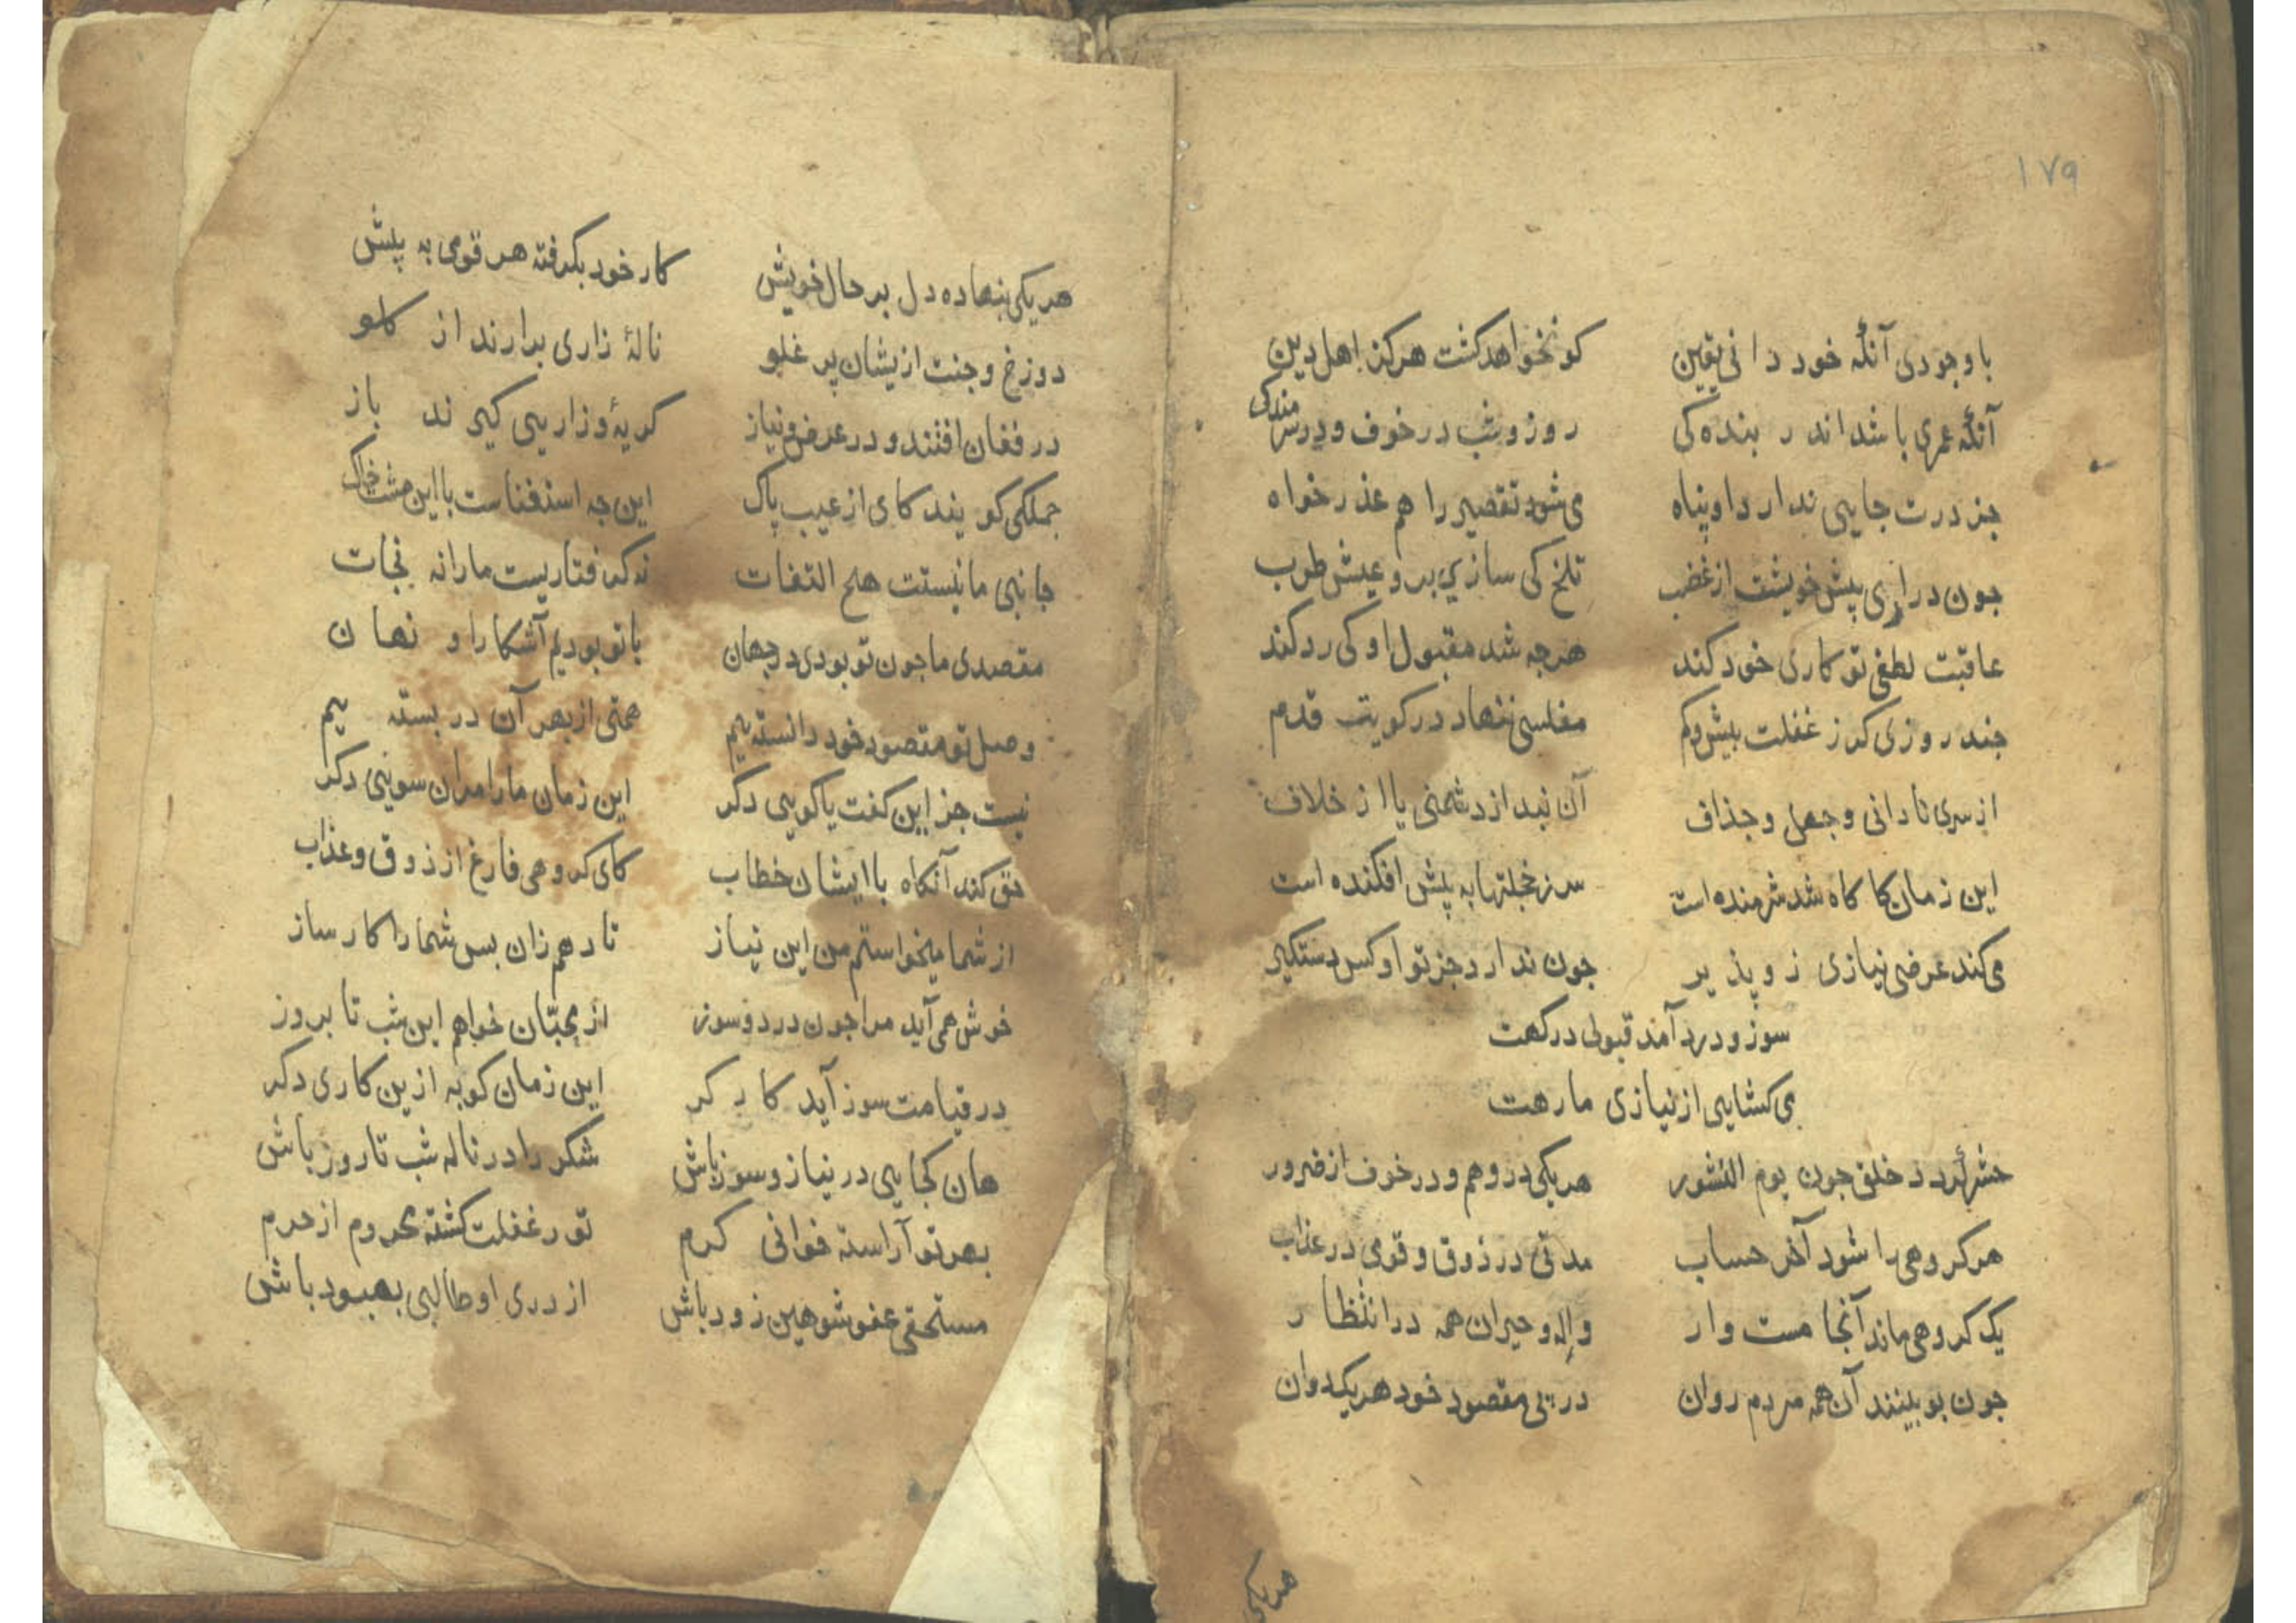 ۱۷۹
با وجودی آنکه خود دانی یقین کو نخواهد کشت هرکز اهل دین
آنکه عمری باشد اندر بنده کی روز و شب در خوف و در شرمندکی
جز درت جایی ندارد او پناه می شود تقصیر را هم عذر خواه
جون درآری پیش خویشت از غضب تلخ کی سازی برو عیش طرب
عاقبت لطفی تو کاری خود کند هرجه شد مقبول او کی رد کند
جند روزی کر ز غفلت بیش و کم مفلسی ننهاد در کویت قدم
از سری نادانی و جهل و جذاف آن نبد از دشمنی یا از خلاف
این زمان کاکاه شد شرمنده است سر ز خجلتها به پیش افکنده است
می کند عرضی نیازی زو پذیر جون ندارد جز تو او کس دستکیر
سوز و درد آمد قبولی درکهت
می کشایی از نیازی ما رهت
حشر کردد خلق جون یوم النشور هر یکی در وهم و در خوف از ضرور
هر کروهی را شود آخر حساب مدتی در ذوق و قومی در عذاب
یک کروهی ماند آنجا مست وار واله و حیران همه در انتظار
جون بو بینند آن همه مردم روان در پی مقصود خود هر یک دوان
هر یکی
هر یکی بنهاده دل بر حال خویش کار خود بکرفته هر قومی به پیش
دوزخ و جنت ازیشان پر غلو نالهٔ زاری برارند از کلو
در فغان افتند و در عرض و نیاز کریهٔ و زاریی کیرند باز
جملکی کویند کای از عیب پاک این جه استغناست با این مشت خاک
جانبی ما نیستت هیج التفات نه کرفتاریست ما را نه نجات
مقصدی ما جون تو بودی در جهان با تو بودیم آشکارا و نهان
وصل تو مقصود خود دانسته ییم همتی از بهر آن در بسته ییم
نیست جز این کفت یا کویی دکر این زمان ما را مران سویی دکر
حق کند آنکاه با ایشان خطاب کای کروهی فارغ از ذوق و عذاب
از شما میخواستم من این نیاز تا دهم زان بس شما را کار ساز
خوش همی آید مرا جون درد و سوز از محبّان خواهم این شب تا بروز
در قیامت سوز آید کارکر این زمان کو به ازین کاری دکر
هان کجایی در نیاز و سوز باش شکر را در ناله شب تا روز باش
بهر تو آراسته خوانی کرم تو ر غفلت کشته محروم از حرم
مستحقی عفو شو هین زود باش از دری او طالبی بهبود باش